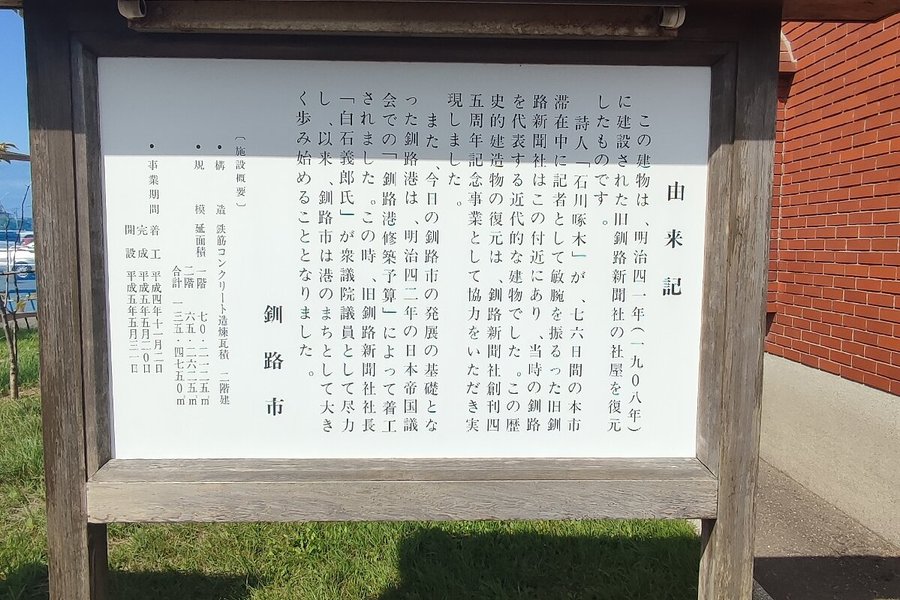 由来記
この建物は、明治四一年(一九〇八年)
に建設された旧釧路新聞社の社屋を復元
したものです。
詩人「石川啄木」が、七六日間の本市
滞在中に記者として敏腕を振るった旧釧
路新聞社はこの付近にあり、当時の釧路
を代表する近代的な建物でした。この歴
史的建造物の復元は、釧路新聞社創刊四
五周年記念事業として協力をいただき実
現しました。
また、今日の釧路市の発展の基礎とな
った釧路港は、明治四二年の日本帝国議
会での「釧路港修築予算」によって着工
されました。この時、旧釧路新聞社社長
「白石義郎氏」が衆議院議員として尽力
し、以来、釧路市は港のまちとして大き
く歩み始めることとなりました。
釧路市
〔施設概要〕
・構造 鉄筋コンクリート造煉瓦積 二階建
・規模 延面積 一階 七〇・二一二五㎡
二階 六五・二六二五㎡
合計 一三五・四七五〇㎡
・事業期間 着工 平成四年十一月二日
完成 平成五年五月二〇日
開設 平成五年五月三一日